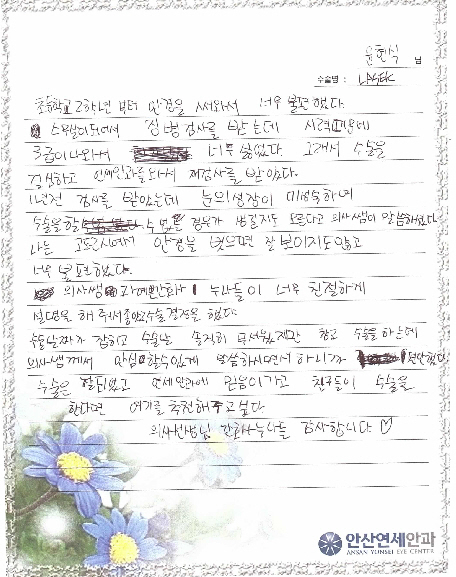 윤현식 님
수술명 : LASEK
초등학교 2학년 부터 안경을 써와서 너무 불편했다.
스무살이되어서 신병검사를 받는데 시력때문에
3급이나와서 너무 싫었다. 그래서 수술을
결심하고 연세안과를와서 재검사를 받았다.
1년전 검사를 받았는데 눈의성장이 미성숙하여
수술을할 수 없는 경우가 생길지도 모른다고 의사쌤이 말씀해줬다.
나는 고도근시여서 안경을 벗으면 잘보이지도않고
너무 불편했다.
의사쌤 과 간호사 누나들이 너무 친절하게
설명을 해주셔서 수술결정을 했다.
수술날짜가 잡히고 수술날 솔직히 무서웠지만 참고 수술을 하는데
의사쌤께서 안심할수있게 말씀하시면서 하니까 편안했다.
수술은 잘되었고 연세안과에 믿음이가고 친구들이 수술을
한다면 여기를 추천해주고싶다.
의사선생님 간호사누나들 감사합니다 ♡
안산연세안과
ANSAN YONSEI EYE CENTER